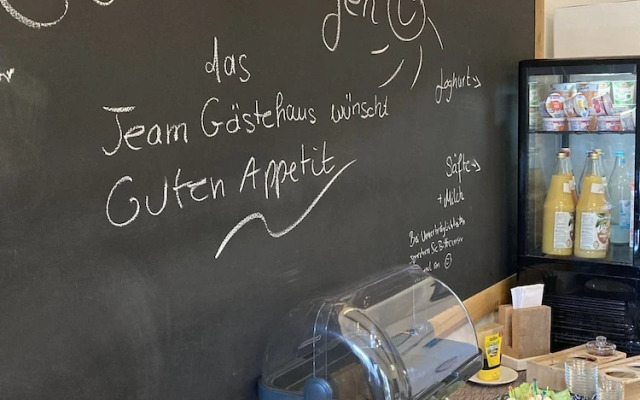 gen
das
Team Gästehaus wünscht
Guten Appetit
Joghurt→
Säfte→
+ Milch
Bei Unverträglichkeiten
sprechen Sie Bitte unser